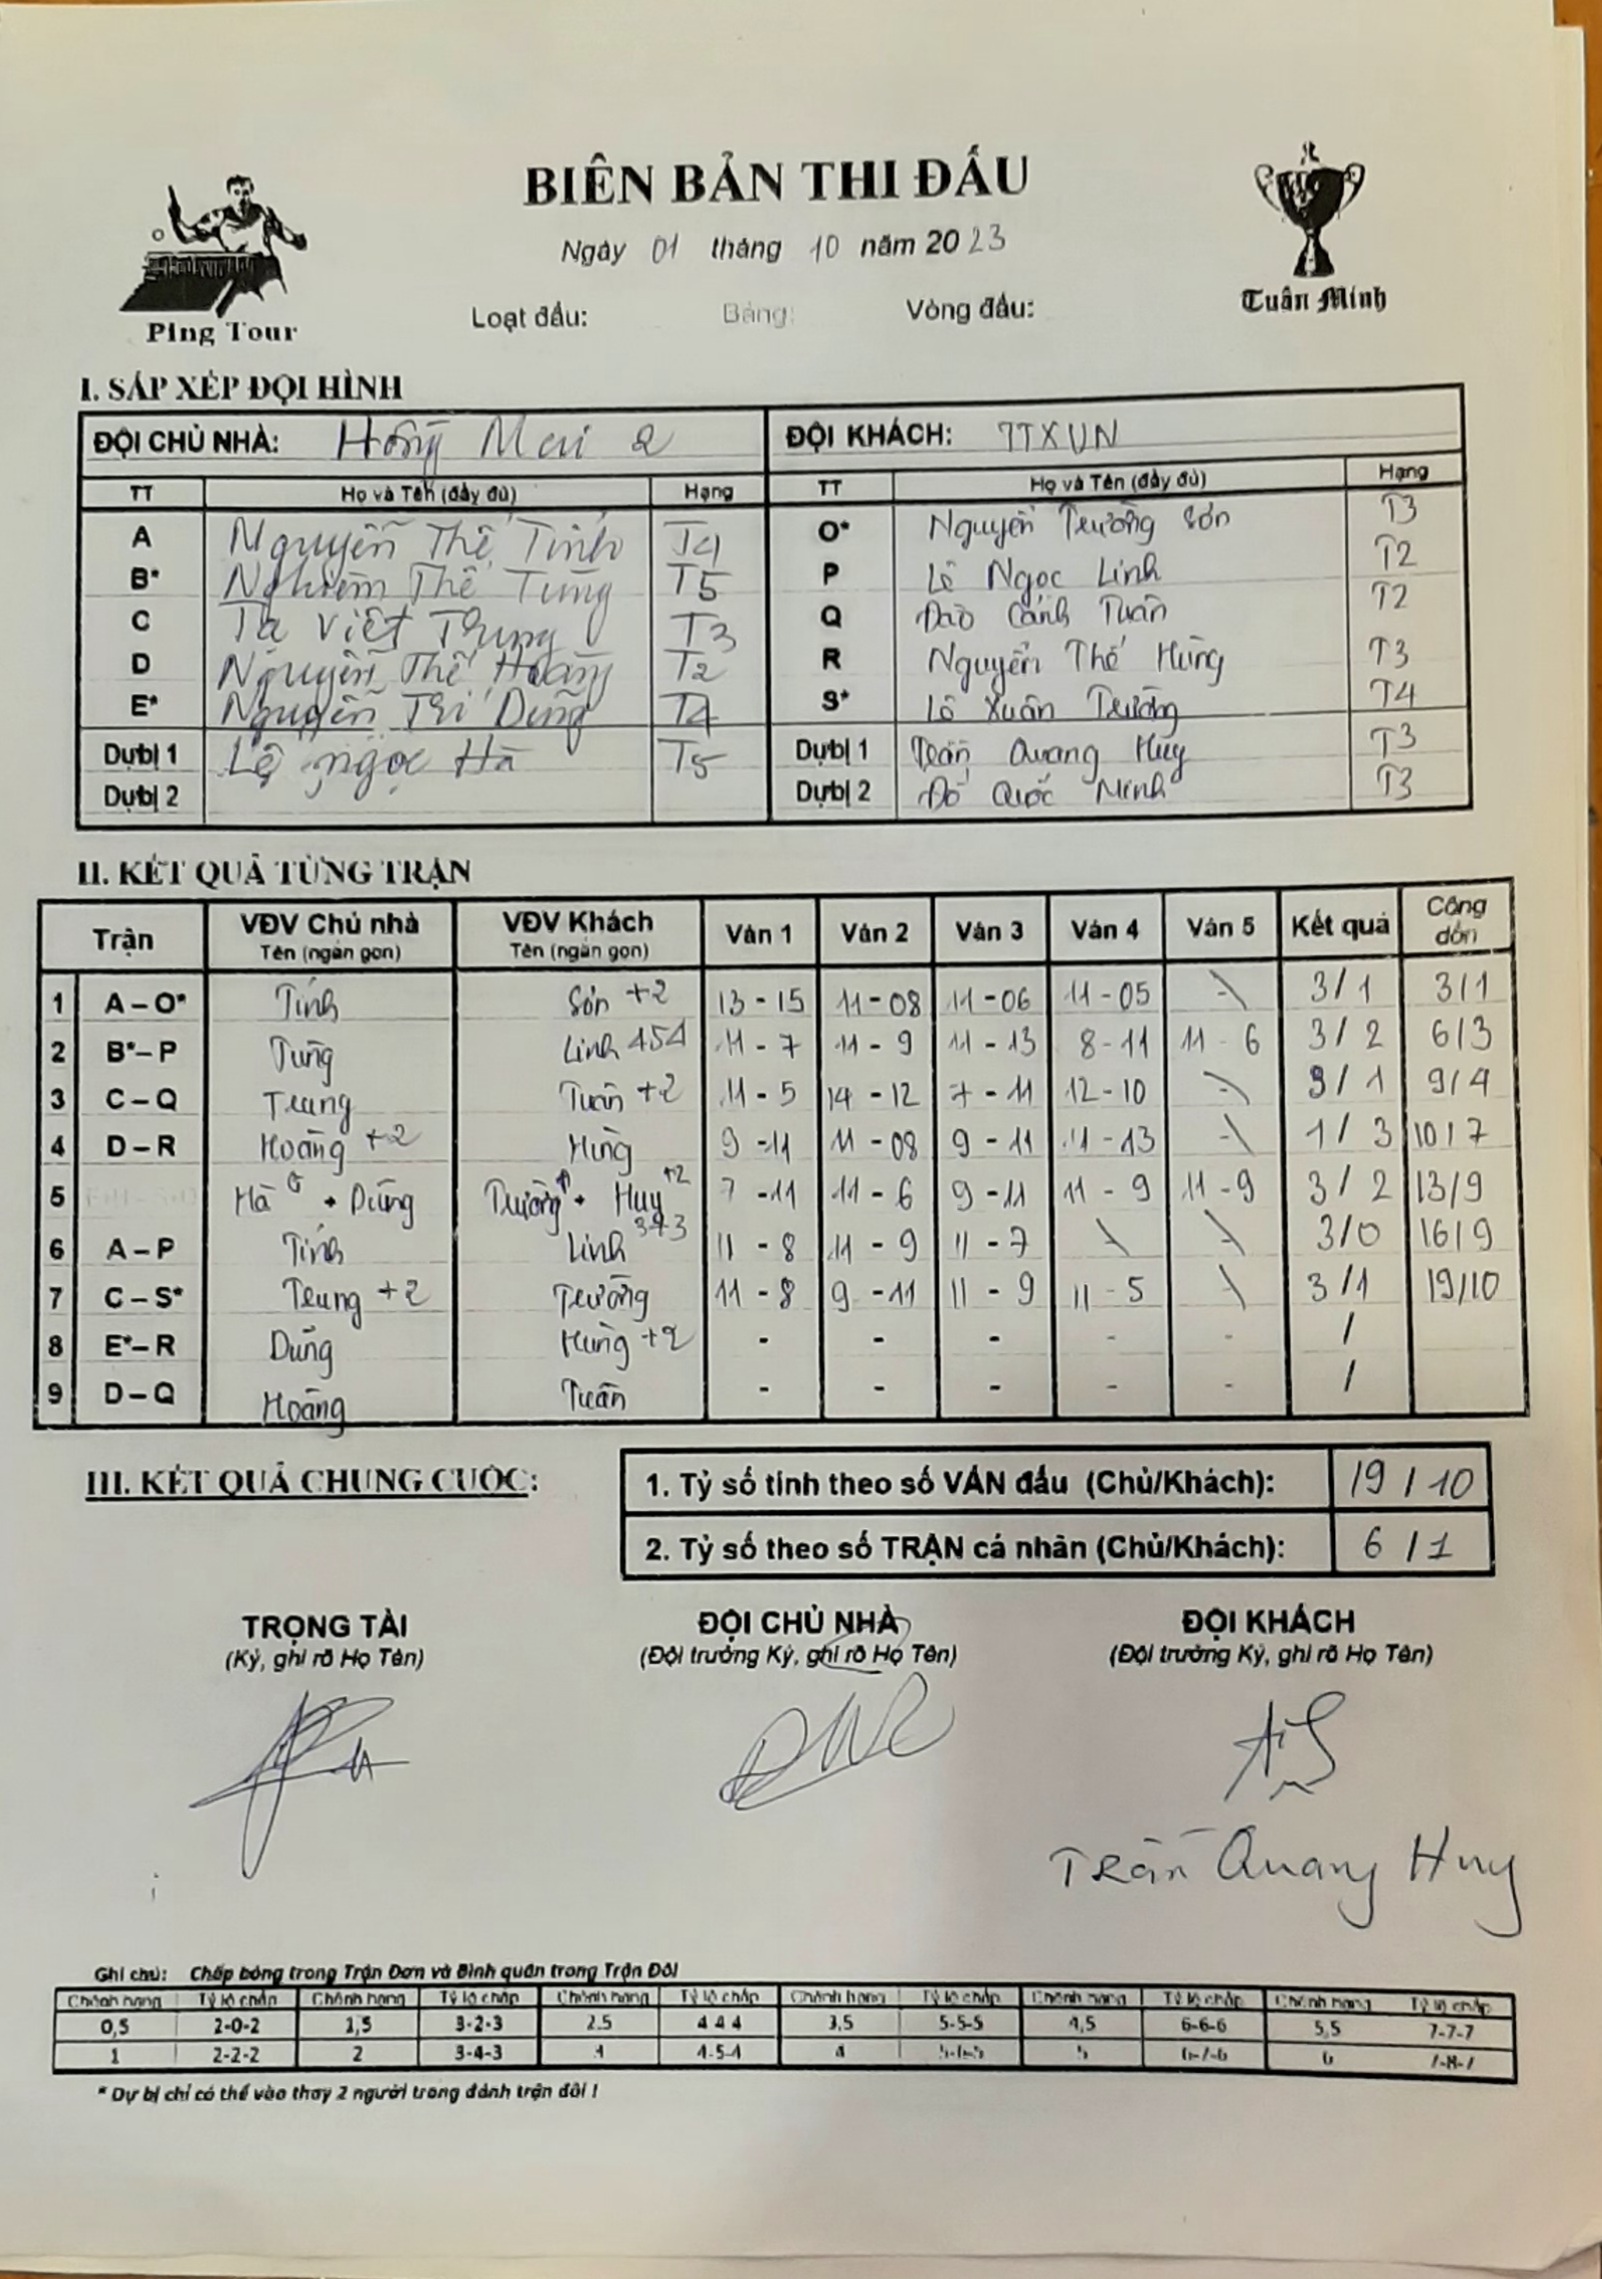 BIÊN BẢN THI ĐẤU
Ngày 01 tháng 10 năm 2023
Ping Tour
Loạt đấu: Bảng: Vòng đấu:
Tuấn Minh
I. SẮP XẾP ĐỘI HÌNH
ĐỘI CHỦ NHÀ: Hồng Mai 2 ĐỘI KHÁCH: TTXVN
TT Họ và Tên (đầy đủ) Hạng TT Họ và Tên (đầy đủ) Hạng
A Nguyễn Thế Tính T4 O* Nguyễn Trường Sơn T3
B* Nghiêm Thế Tùng T5 P Lê Ngọc Linh T2
C Tạ Viết Trung T3 Q Đào Cảnh Tuân T2
D Nguyễn Thế Hoàng T2 R Nguyễn Thế Hùng T3
E* Nguyễn Trí Dũng T4 S* Lê Xuân Trường T4
Dự bị 1 Lê Ngọc Hà T5 Dự bị 1 Trần Quang Huy T3
Dự bị 2 Dự bị 2 Đỗ Quốc Minh T3
II. KẾT QUẢ TỪNG TRẬN
Trận VĐV Chủ nhà VĐV Khách Ván 1 Ván 2 Ván 3 Ván 4 Ván 5 Kết quả Cộng dồn
Tên (ngắn gọn) Tên (ngắn gọn)
1 A – O* Tính Sơn +2 13 - 15 11 - 08 11 - 06 11 - 05 - 3/1 3/1
2 B* – P Tùng Linh 454 11 - 7 11 - 9 11 - 13 8 - 11 11 - 6 3/2 6/3
3 C – Q Trung Tuân +2 11 - 5 14 - 12 7 - 11 12 - 10 - 3/1 9/4
4 D – R Hoàng +2 Hùng 9 - 11 11 - 08 9 - 11 11 - 13 - 1/3 10/7
5 Hà + Dũng Trường + Huy +2 7 - 11 11 - 6 9 - 11 11 - 9 11 - 9 3/2 13/9
6 A – P Tính Linh 343 11 - 8 11 - 9 11 - 7 - - 3/0 16/9
7 C – S* Trung +2 Trường 11 - 8 9 - 11 11 - 9 11 - 5 - 3/1 19/10
8 E* – R Dũng Hùng +2 - - - - - /
9 D – Q Hoàng Tuân - - - - - /
III. KẾT QUẢ CHUNG CUỘC:
1. Tỷ số tính theo số VÁN đấu (Chủ/Khách): 19 / 10
2. Tỷ số theo số TRẬN cá nhân (Chủ/Khách): 6 / 1
TRỌNG TÀI ĐỘI CHỦ NHÀ ĐỘI KHÁCH
(Ký, ghi rõ Họ Tên) (Đội trưởng Ký, ghi rõ Họ Tên) (Đội trưởng Ký, ghi rõ Họ Tên)
Trần Quang Huy
Ghi chú: Chấp bóng trong Trận Đơn và Bình quân trong Trận Đôi
Chênh hạng Tỷ lệ chấp Chênh hạng Tỷ lệ chấp Chênh hạng Tỷ lệ chấp Chênh hạng Tỷ lệ chấp Chênh hạng Tỷ lệ chấp Chênh hạng Tỷ lệ chấp
0,5 2-0-2 1,5 3-2-3 2.5 4 4 4 3,5 5-5-5 4,5 6-6-6 5,5 7-7-7
1 2-2-2 2 3-4-3 4-5-4 4 5 6 7-8-7
* Dự bị chỉ có thể vào thay 2 người trong đánh trận đôi !